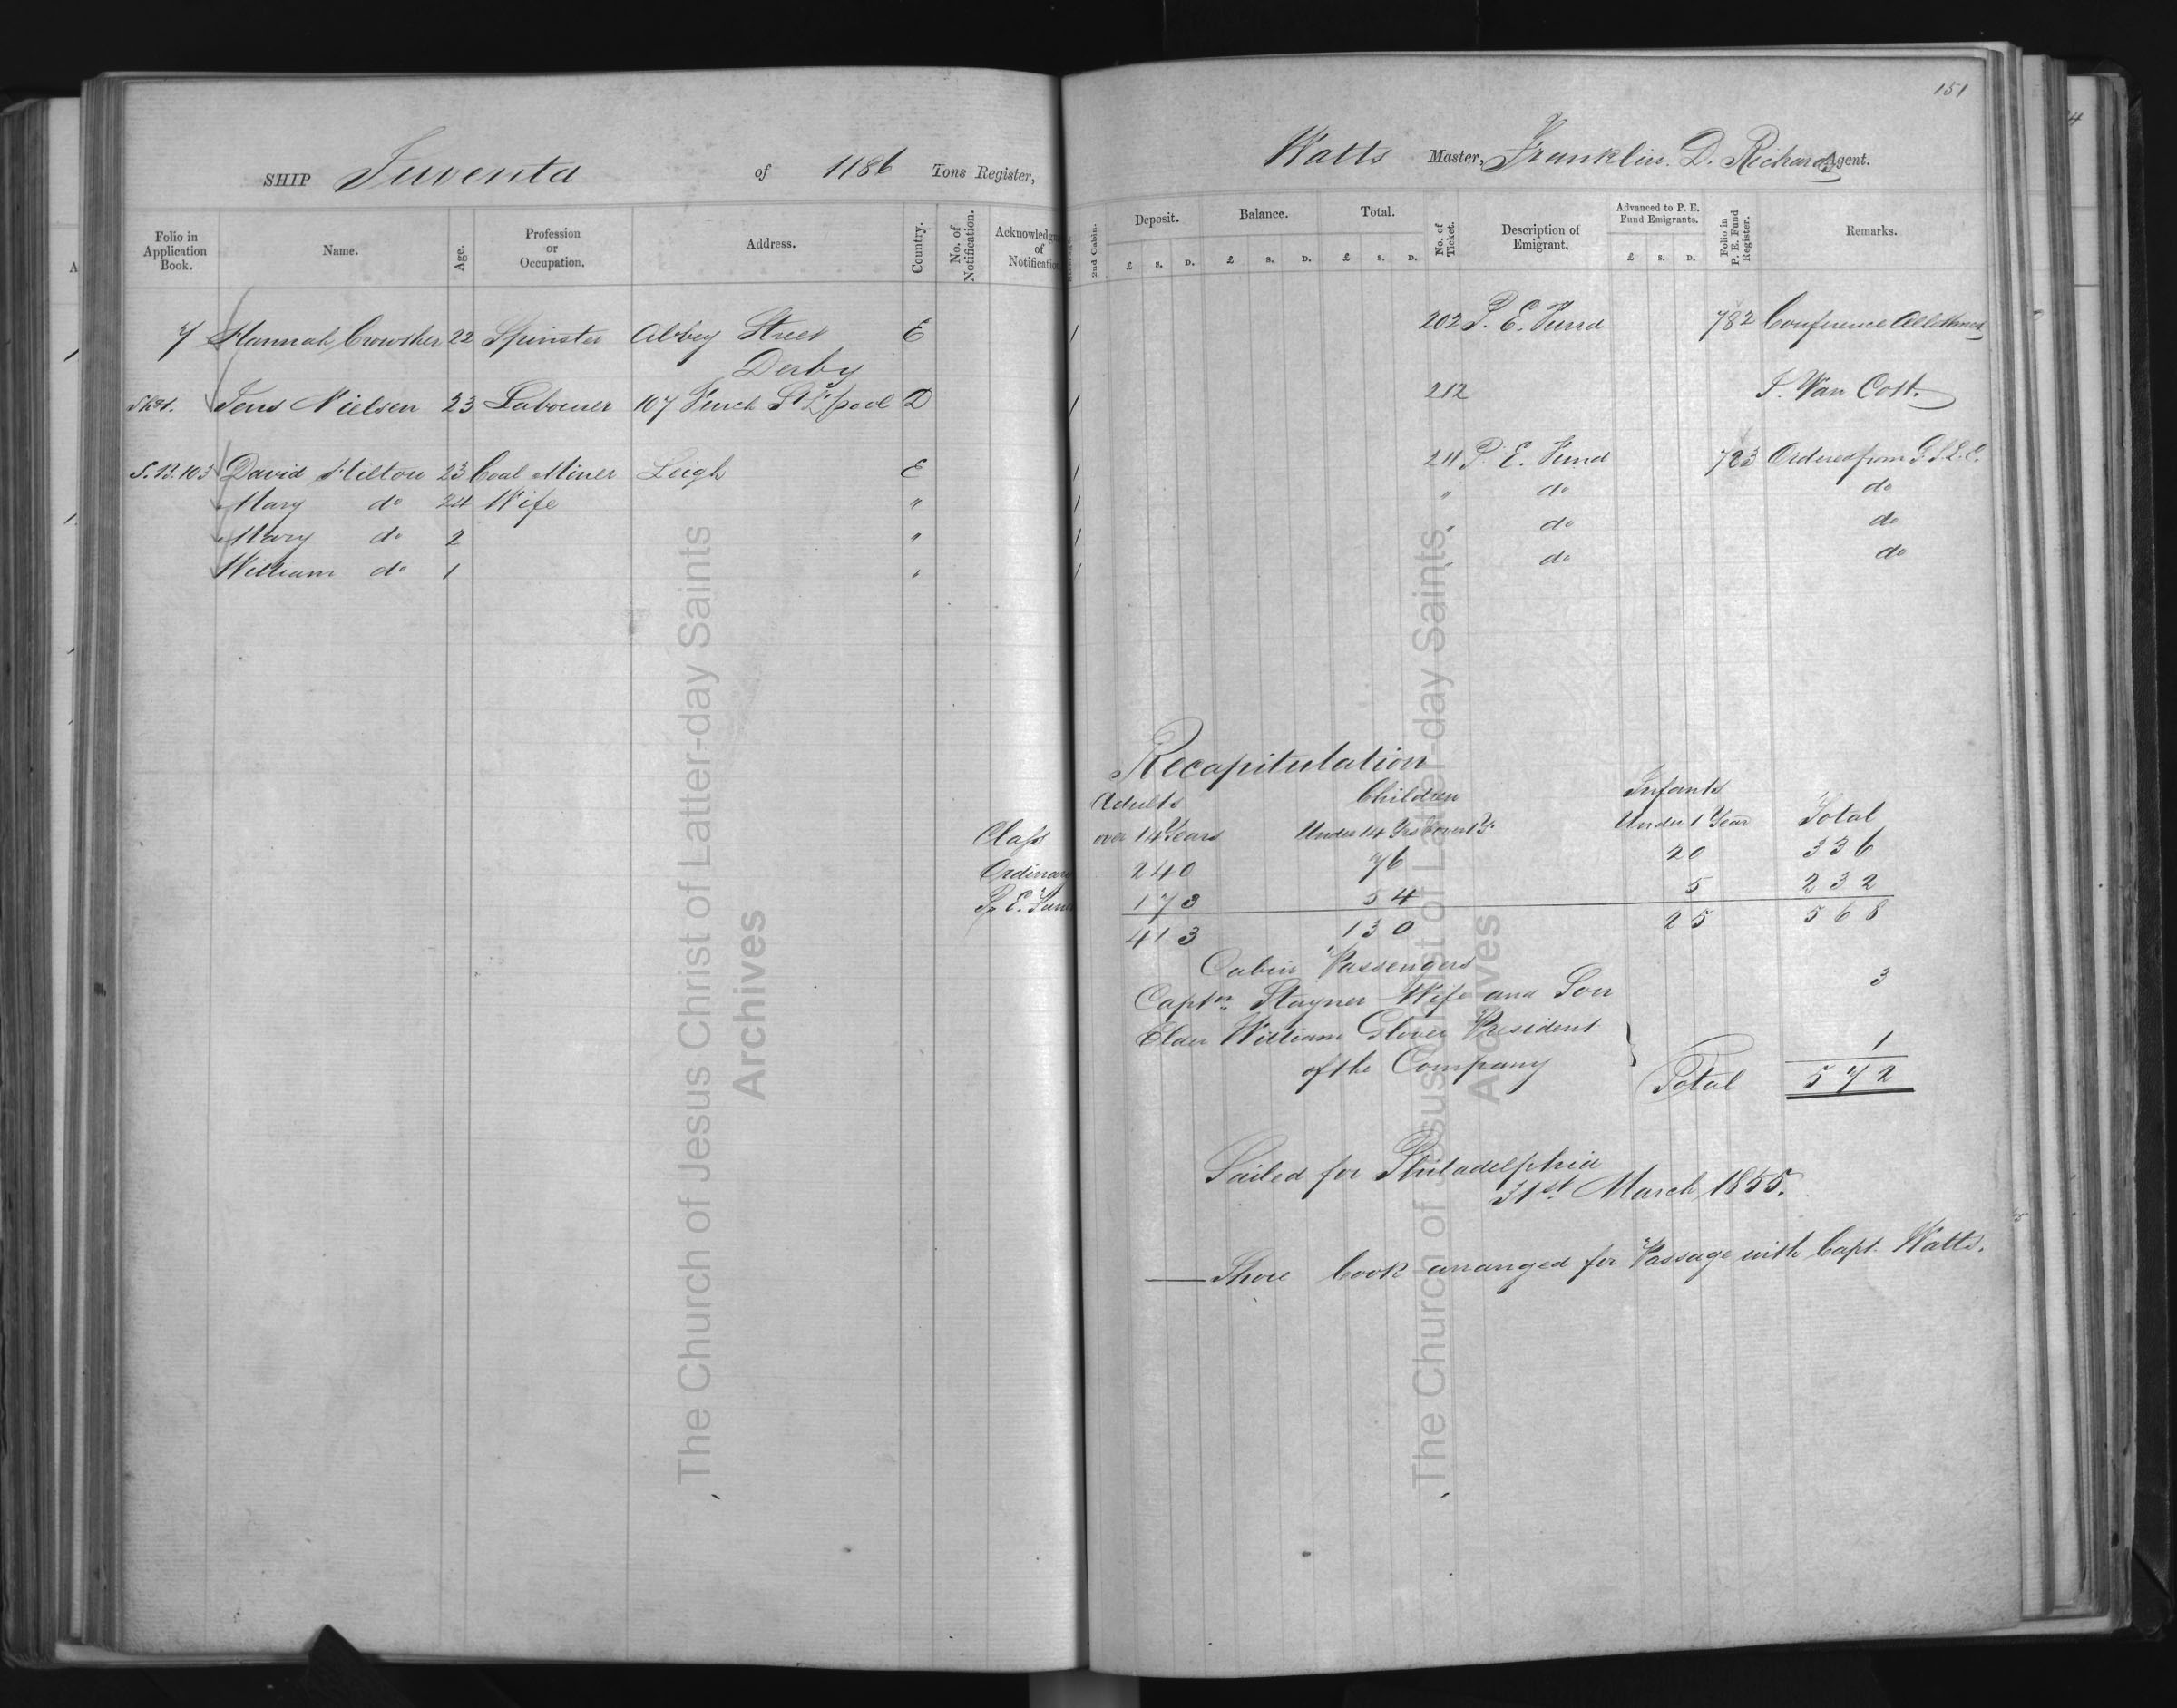 151
SHIP Juventa of 1186 Tons Register,
Watts Master, Franklin. D. Richards Agent.
Folio in Application Book.
Name.
Age.
Profession or Occupation.
Address.
Country.
No. of Notification.
Acknowledgm of Notification
2nd Cabin.
Deposit. £ s. D.
Balance. £ s. D.
Total. £ s. D.
No. of Ticket.
Description of Emigrant.
Advanced to P. E. Fund Emigrants. £ s. D.
Folio in P. E. Fund Register.
Remarks.
7 Hannah Crowther 22 Spinster Abbey Street E 1 202 P. E. Fund 782 Conference Allotment
Derby
Jens Nielsen 23 Labourer 107 Finch St L'pool D 1 212 J. Van Cott.
S. B. 103 David Hilton 23 Coal Miner Leigh E 1 211 P. E. Fund 723 Ordered from G. S. L. C.
Mary do 24 Wife " 1 " do do
Mary do 2 " 1 " do do
William do 1 " 1 do do
Recapitulation
Adults Children Infants
Class over 14 Years Under 14 Yrs & over 1 Y. Under 1 Year Total
Ordinary 240 76 20 336
P. E. Fund 173 54 5 232
413 130 25 568
Cabin Passengers
Captn Stayner Wife and Son 3
Elder William Glover President
of the Company } 1
Total 572
Sailed for Philadelphia
31st March 1855.
Shore Cook arranged for Passage with Capt. Watts.
The Church of Jesus Christ of Latter-day Saints
Archives
The Church of Jesus Christ of Latter-day Saints
Archives